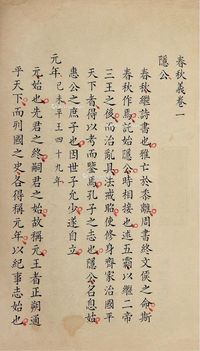 春秋義卷一
隱公
春秋繼詩書也雅亡於黍離周書終文侯之命斯
春秋作焉託始隱公時相接也述五霸以繼二帝
三王之後而治亂具法戒昭使修身齊家治國平
天下者得以考而鑒焉孔子之志也隱公名息姑
惠公之庶子也因世子允少遂自立
元年己未平王四十九年
元始也先君之終嗣君之始故稱元王者正朔通
乎天下而列國之史各得稱元年以紀事志始也